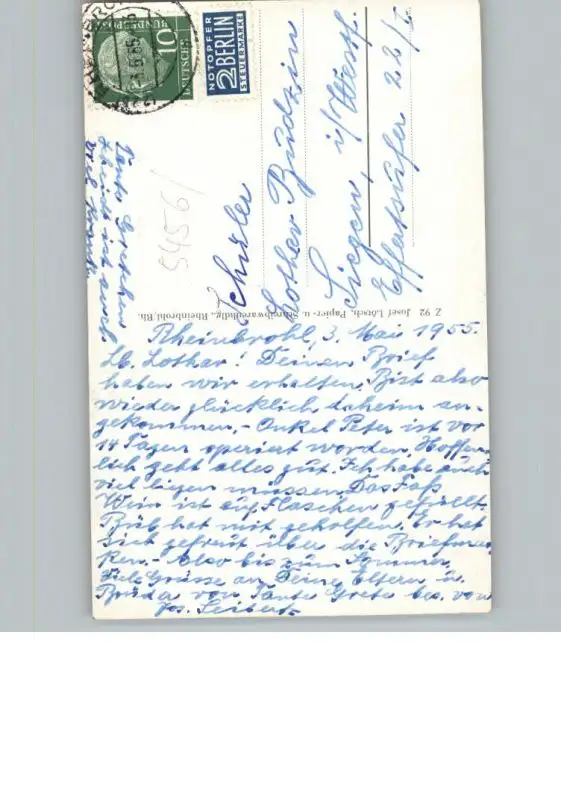 10
DEUTSCHE
BUNDESPOST
NOTOPFER
2 BERLIN
STEUERMARKE
Schüler
Lothar Budzin
Siegen, i/Westf.
Effertsufer 22/I
5456/
Z 92 Josef Lötsch, Papier- u. Schreibwarenhdlg., Rheinbrohl/Rh.
Rheinbrohl, 3. Mai 1955.
Lb. Lothar! Deinen Brief
haben wir erhalten, Bist also
wieder glücklich daheim an-
gekommen. - Onkel Peter ist vor
14 Tagen operiert worden. Hoffen-
lich geht alles gut. Ich habe auch
viel liegen müssen. Das Faß
Wein ist auf Flaschen gefüllt.
hat mit geholfen. Er hat
sich gefreut über die Briefmar-
ken. - Also bis zum Sommer
Viele Grüsse an Deine Eltern u.
Bruder von Tante Grete bes. von
Jos. Seibert.
Tante
ist auch